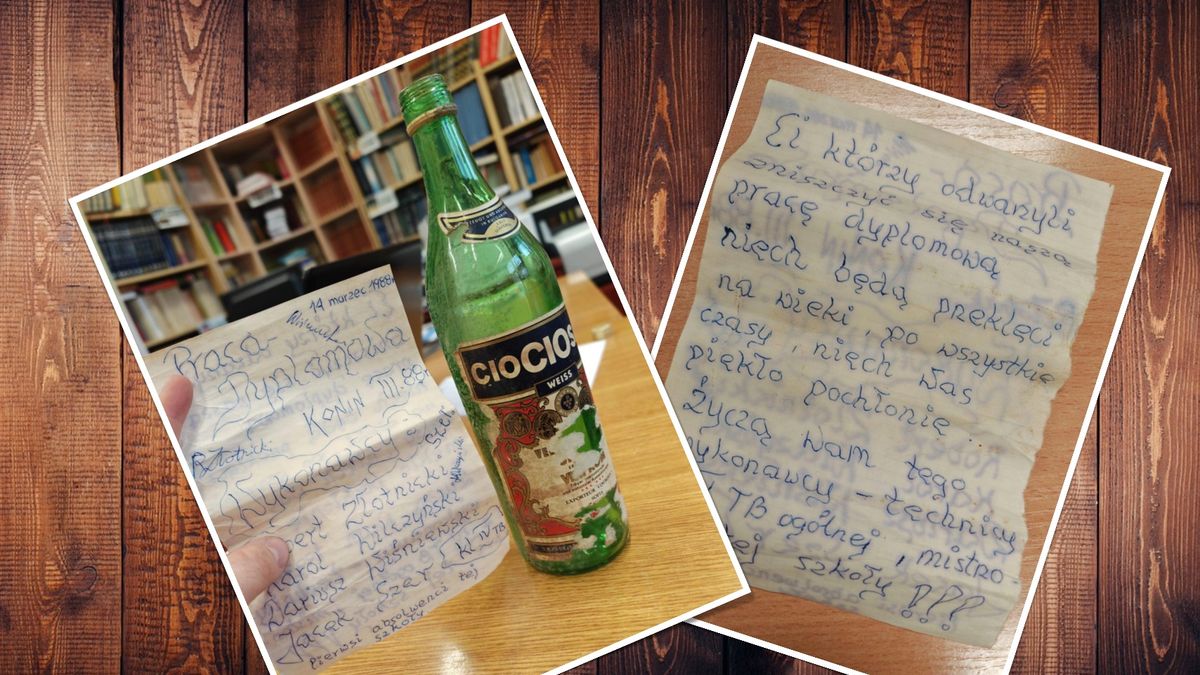 14 marzec 1988r
Praca
Dyplomowa
KONIN III.88r
Złotnicki
Wykonawcy
Złotnicki
Karol Wilczyński
Dariusz Wiśniewski
Jacek Szer KL IV TB
Pierwsi absolwenci tej
szkoły
CIOCIOS
WEISS
Ei którzy odważyli
zniszczyć się naszą
pracę dyplomową
niech będą preklęci
na wieki, po wszystkie
czasy, niech Was
piękło pochłonie...
Życzą wam tego
wykonawcy – technicy
TB ogólnej, mistro
tej szkoły !!!